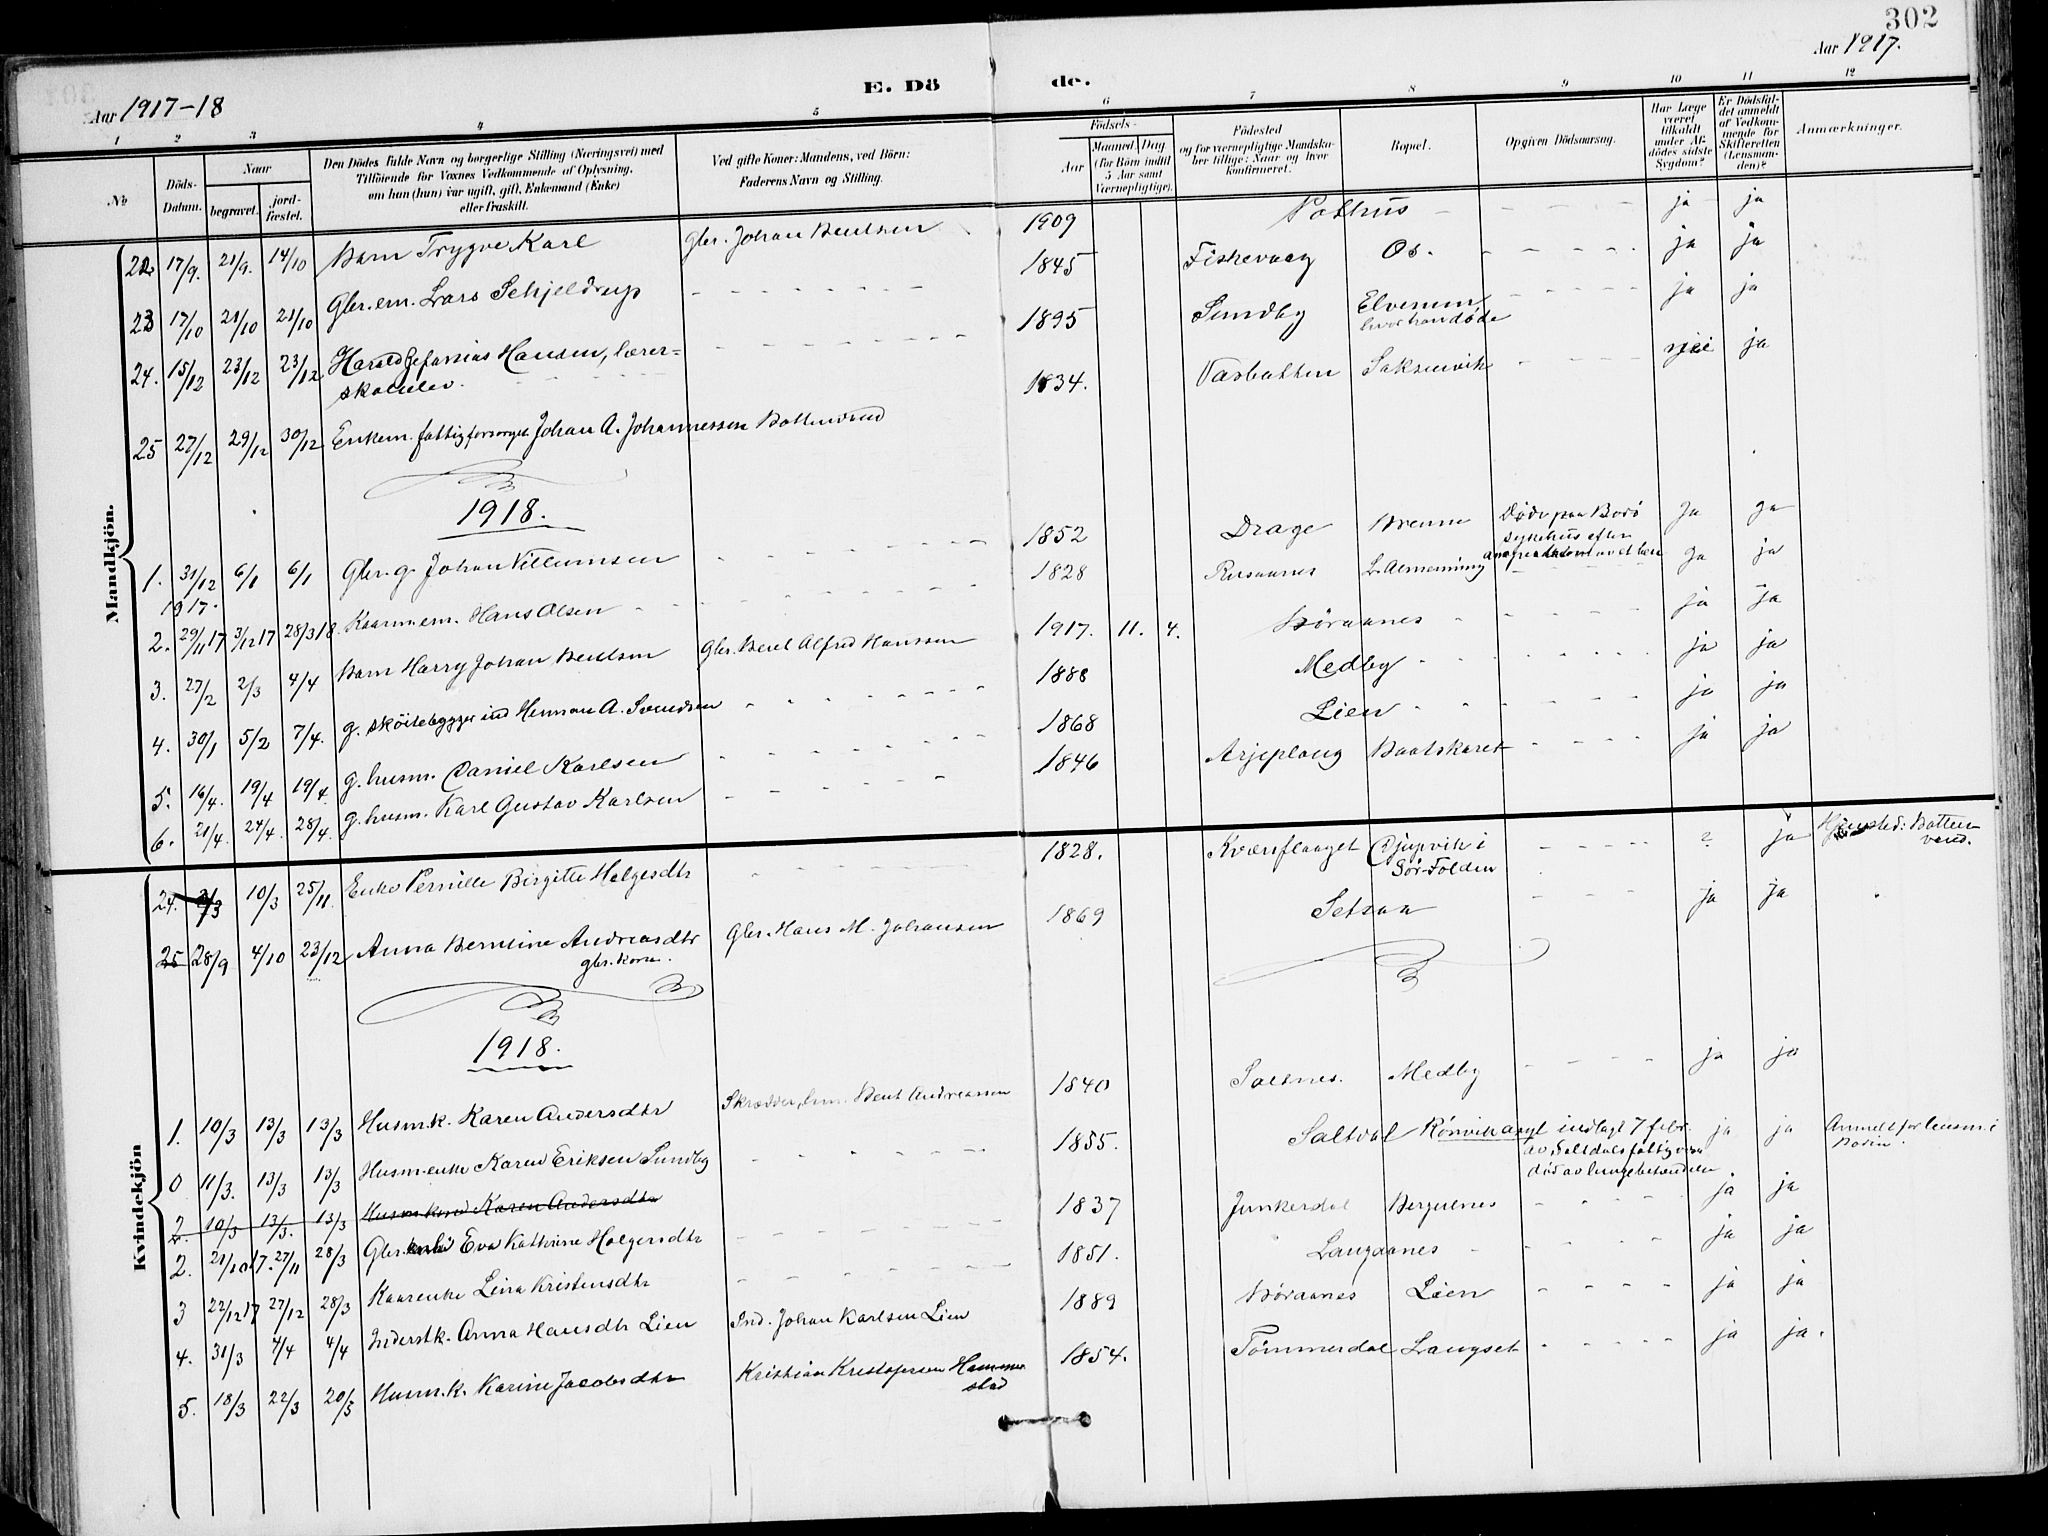 302
Aar 1917.
Aar 1917-18
E. Dö de.
1 2 3 4 5 6 7 8 9 10 11 12
№
Döds-Datum.
Naar
begravet.
jord-fæstet.
Den Dödes fulde Navn og borgerlige Stilling (Næringsvei) med
Tilföiende for Voxnes Vedkommende af Oplysning,
om han (hun) var ugift, gift, Enkemand (Enke)
eller fraskilt.
Ved gifte Koner: Mandens, ved Börn:
Faderens Navn og Stilling.
Födsels-
Aar
Maaned. Dag
(for Börn indtil
5 Aar samt
Værnepligtige).
Födested
og for værnepligtige Mandska-
ber tillige: Naar og hvor
konfirmeret.
Bopel.
Opgiven Dödsaarsag.
Har Læge
været
tilkaldt
under Af-
dödes sidste
Sygdom?
Er Dödsfal-
det anmeldt
af Vedkom-
mende for
Skifteretten
(Lensman-
den)?
Anmærkninger.
Mandkjön.
22 17/9. 21/9. 14/10 Barn Trygve Karl Gbr. Johan Bentsen 1909 Pothus ja ja
23 17/10 21/10 21/10 Gbr.em. Lars Schjeldrup 1845 Fiskevaag Os. ja ja
24. 15/12 23/12 23/12 Harald Zefanias Hansen, lærer- 1895 Sundby Elverum ja ja
skoleelev. hvor han døde
25 27/12 29/12 30/12 Enkem. fattigforsørget Johan A. Johannessen Bottenvand 1834. Vasbotten Saksenvik nei ja
1918.
1. 31/12 6/1 6/1 Gbr. g. Johan Villumsen 1852 Drage Brenne Døde paa Bodø ja ja
1917. sykehus efter
amputation av et ben
2. 29/11 17 3/12 17 28/3 18. Kaarmem. Hans Olsen 1828 Rusaanes L. Almenning ja ja
3. 27/2 2/3 4/4 Barn Harry Johan Bentsen Gbr. Bent Alfred Hanssen 1917. 11. 4. Nøraanes ja ja
4. 30/1 5/2 7/4. g. skøitebygger ind Herman A. Svendsen 1888 Medby ja ja
5. 16/4. 19/4 19/4 g. husm. Daniel Karlsen 1868 Lien ja ja
6. 21/4. 24/4. 28/4. g. husm. Karl Gustav Karlsen 1846 Arjeploug Baatskaret ja ja
Kvindekjön
24. 3/3 10/3 25/11. Enke Pernille Birgitte Helgesdtr 1828. Kværnflaaget Djupvik i ? ja Hjemsted: Botten-
Sør-Folden vand.
25 28/9 4/10 23/12 Anna Berntine Andreasdtr Gbr. Hans M. Johansen 1869 Setsaa ja ja
gbr. kone.
1918.
1. 10/3 13/3 13/3 Husm.k. Karen Andersdtr Skrædder, hm. Bent Andreassen 1840 Saltnes. Medby ja ja
0 11/3. 13/3 13/3 Husm.enke Karen Eriksen Sundby 1855. Saltdal Rønvik asyl indlagt 7 febr. ja ja Anmeldt for lensm. i
av Saltdals fattigvæsen Bodin.
død av lungebetændelse
2. 10/3 13/3. 13/3 Husm. kone Karen Andersdtr
2. 21/10 17. 27/11 28/3 Gbr. enke Eva Kathrine Holgersdtr 1837 Junkerdal Bergulnes ja ja
3 22/12 17 27/12 28/3 Kaarenke Lina Kristensdtr 1851. Langaanes ja ja
4. 31/3 4/4 4/4 Inderstk. Anna Hansdtr Lien Ind. Johan Karlsen Lien 1889 Nøraanes Lien ja ja
5. 18/3 22/3 20/5 Husm.k. Karine Jacobsdtr Kristian Kristofersen Hammer- 1854. Tømmerdal Langset ja ja.
stad